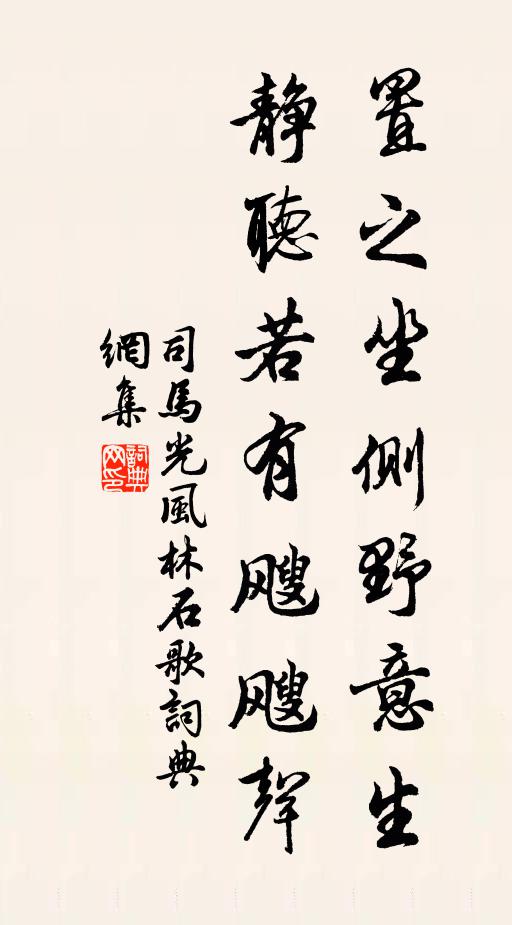 置之坐側野意生
静聽若有颼颼聲
司馬光風林石歌詞典
網集
詞典
网印